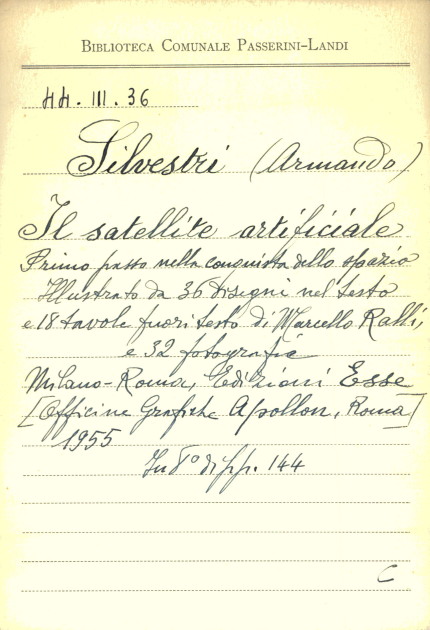 BIBLIOTECA COMUNALE PASSERINI-LANDI
HH. III. 36
Silvestri (Armando)
Il satellite artificiale
Primo passo nella conquista dello spazio
Illustrato da 36 disegni nel testo
e 18 tavole fuori testo di Marcello Ralli,
e 32 fotografie
Milano-Roma, Edizioni Esse
[Officine Grafiche Apollon, Roma]
1955
In 8° di pp. 144
C